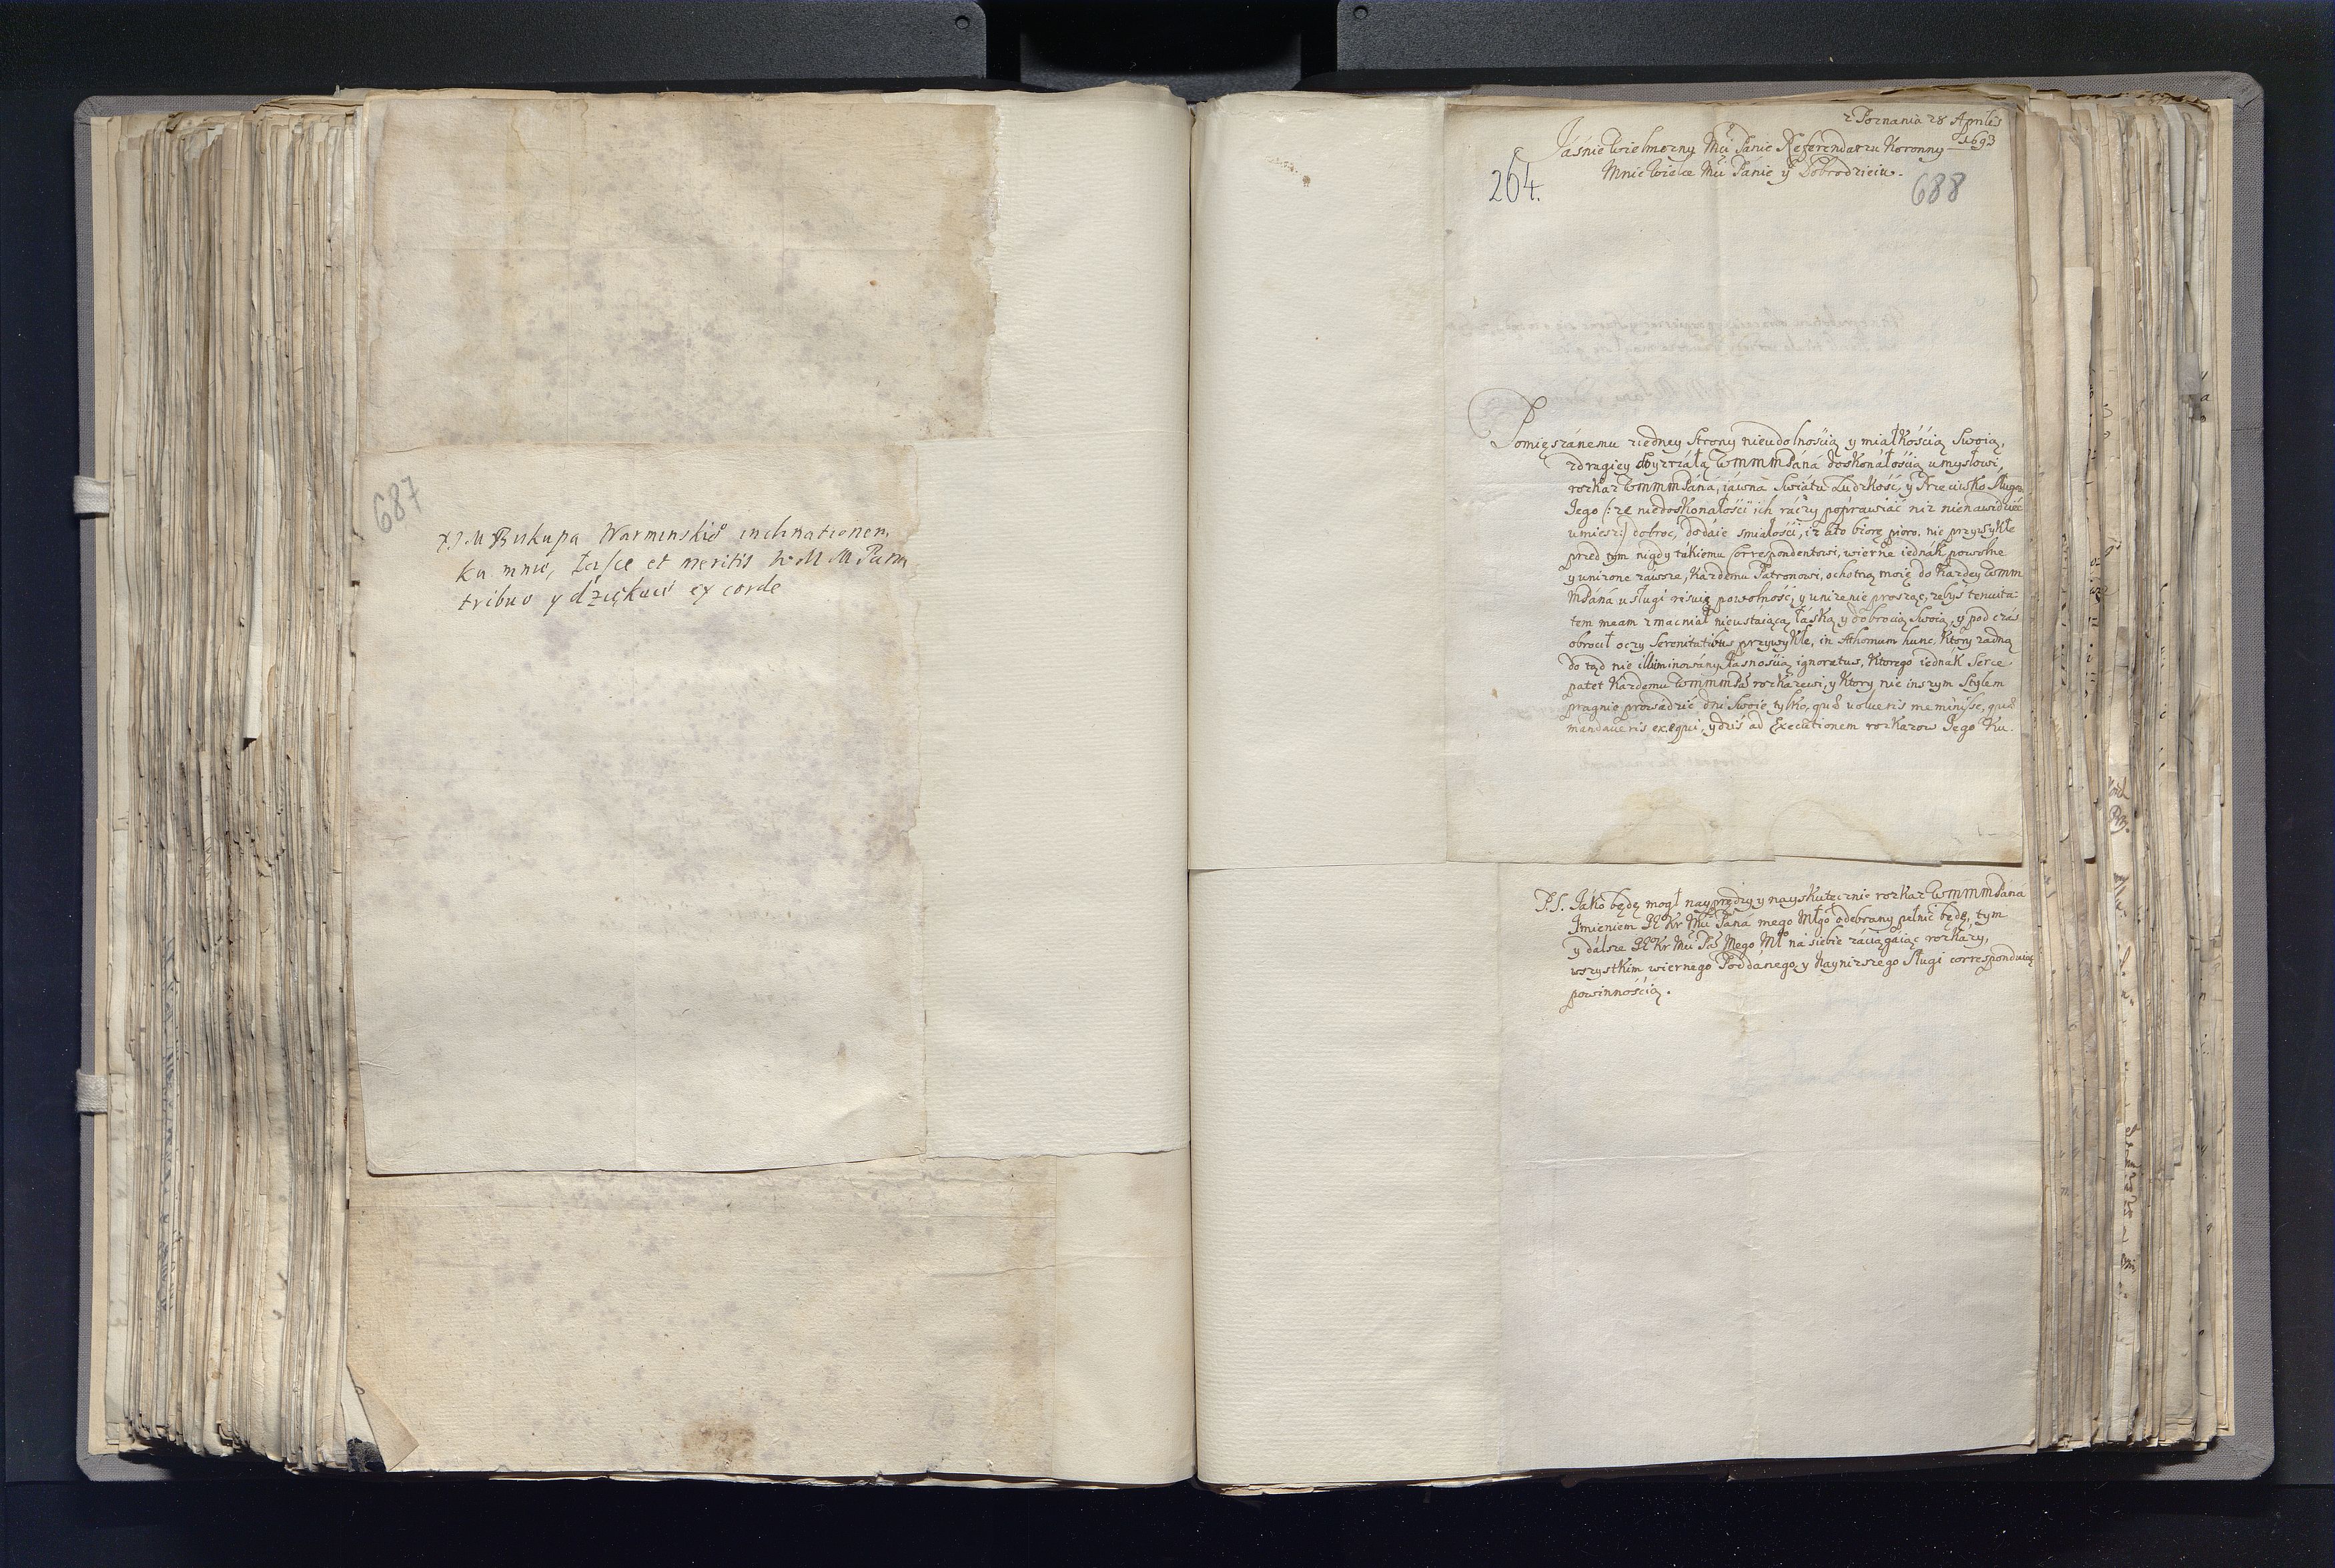 687
X J M Biskupa Warminskio inclinationem
ku mnie, łasce et meritis W M M Pana
tribuo y dziękuię ex corde
z Poznania 28 Aprilis
1693
Jáśnie Wielmozny Mći Pánie Referendarzu Koronny
Mnie Wielce Mći Pánie y Dobrodzieiu.
264.
688
Pomięszánemu ziedney Strony nieudolnością y miałkością Swoią,
zdrugiey WMMMPáná doskonáłością umysłowi,
rozkaz WMMMPáná, iáwna Swiátu Ludzkość, y
Jego /:ze niedoskonáłości ich ráczy popráwiáć niz nienawidzieć
umiesz:/ dobroć, dodáie smiáłości, iz áto biorę pioro, nie przywykłe
przed tym nigdy tákiemu Correspondentowi, wierne iednák powolne
y unizone záwsze, Kázdemu Pátronowi, ochotną moię do Kázdey WMM
MPáná usługi powolność, y unizenie proszę, zebyś tenuita-
tem meam zmacniał nieustáiącą łáską y dobrocią Swoią, y pod czás
obrocił oczy Serenitatibus przywykłe, in Athomum hunc, Ktory zadną
do tąd nie illuminowány Jásnością ignoratus, Ktorego iednák Serce
patet Kázdemu WMMMPá rozkázowi, y Ktory nie inszym Stylem
prágnie prowádzić dni Swoie tylko, quod volueris meminisse, quod
mandaveris exequi, y dziś ad Executionem rozkazow Jego Ku.
P.S. Jáko będę mogł nayprędzey y nayskuteczniey rozkaz WMMMPána
Jmieniem Kr Mći Páná mego Młgo odebrany pełnić będę, tym
y dálsze Kr Mći Páá Mego Młgo ná siebie záciągáiąc rozkázy,
wszystkim wiernego Poddánego y Naynizszego Sługi corresponduiąc
powinnością.